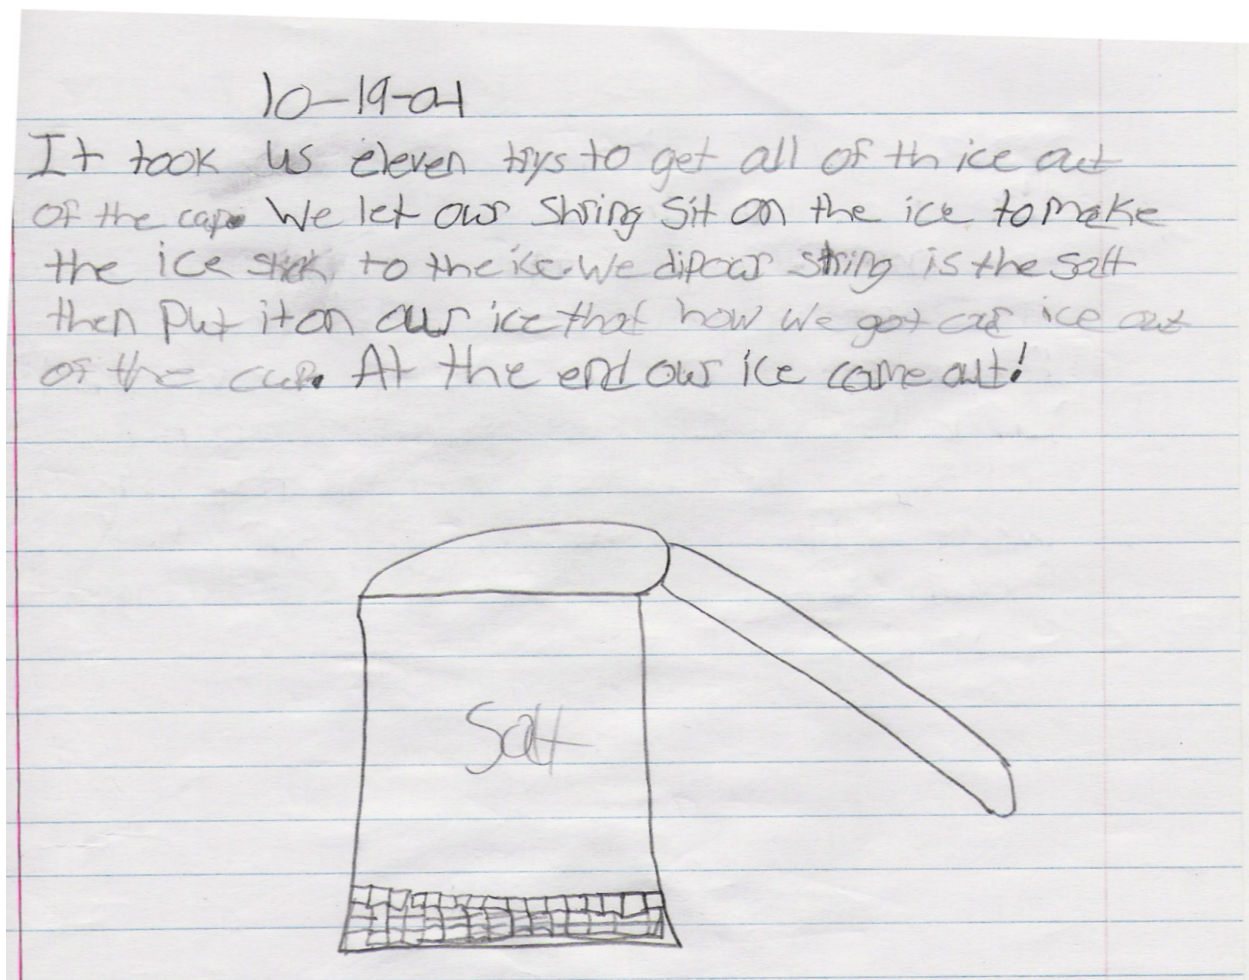 10-19-04
It took us eleven trys to get all of th ice out
of the cup. We let our string sit on the ice to make
the ice stick to the ice. We dip our string is the salt
then put it on our ice that how we got our ice out
of the cup. At the end our ice came out!
Salt